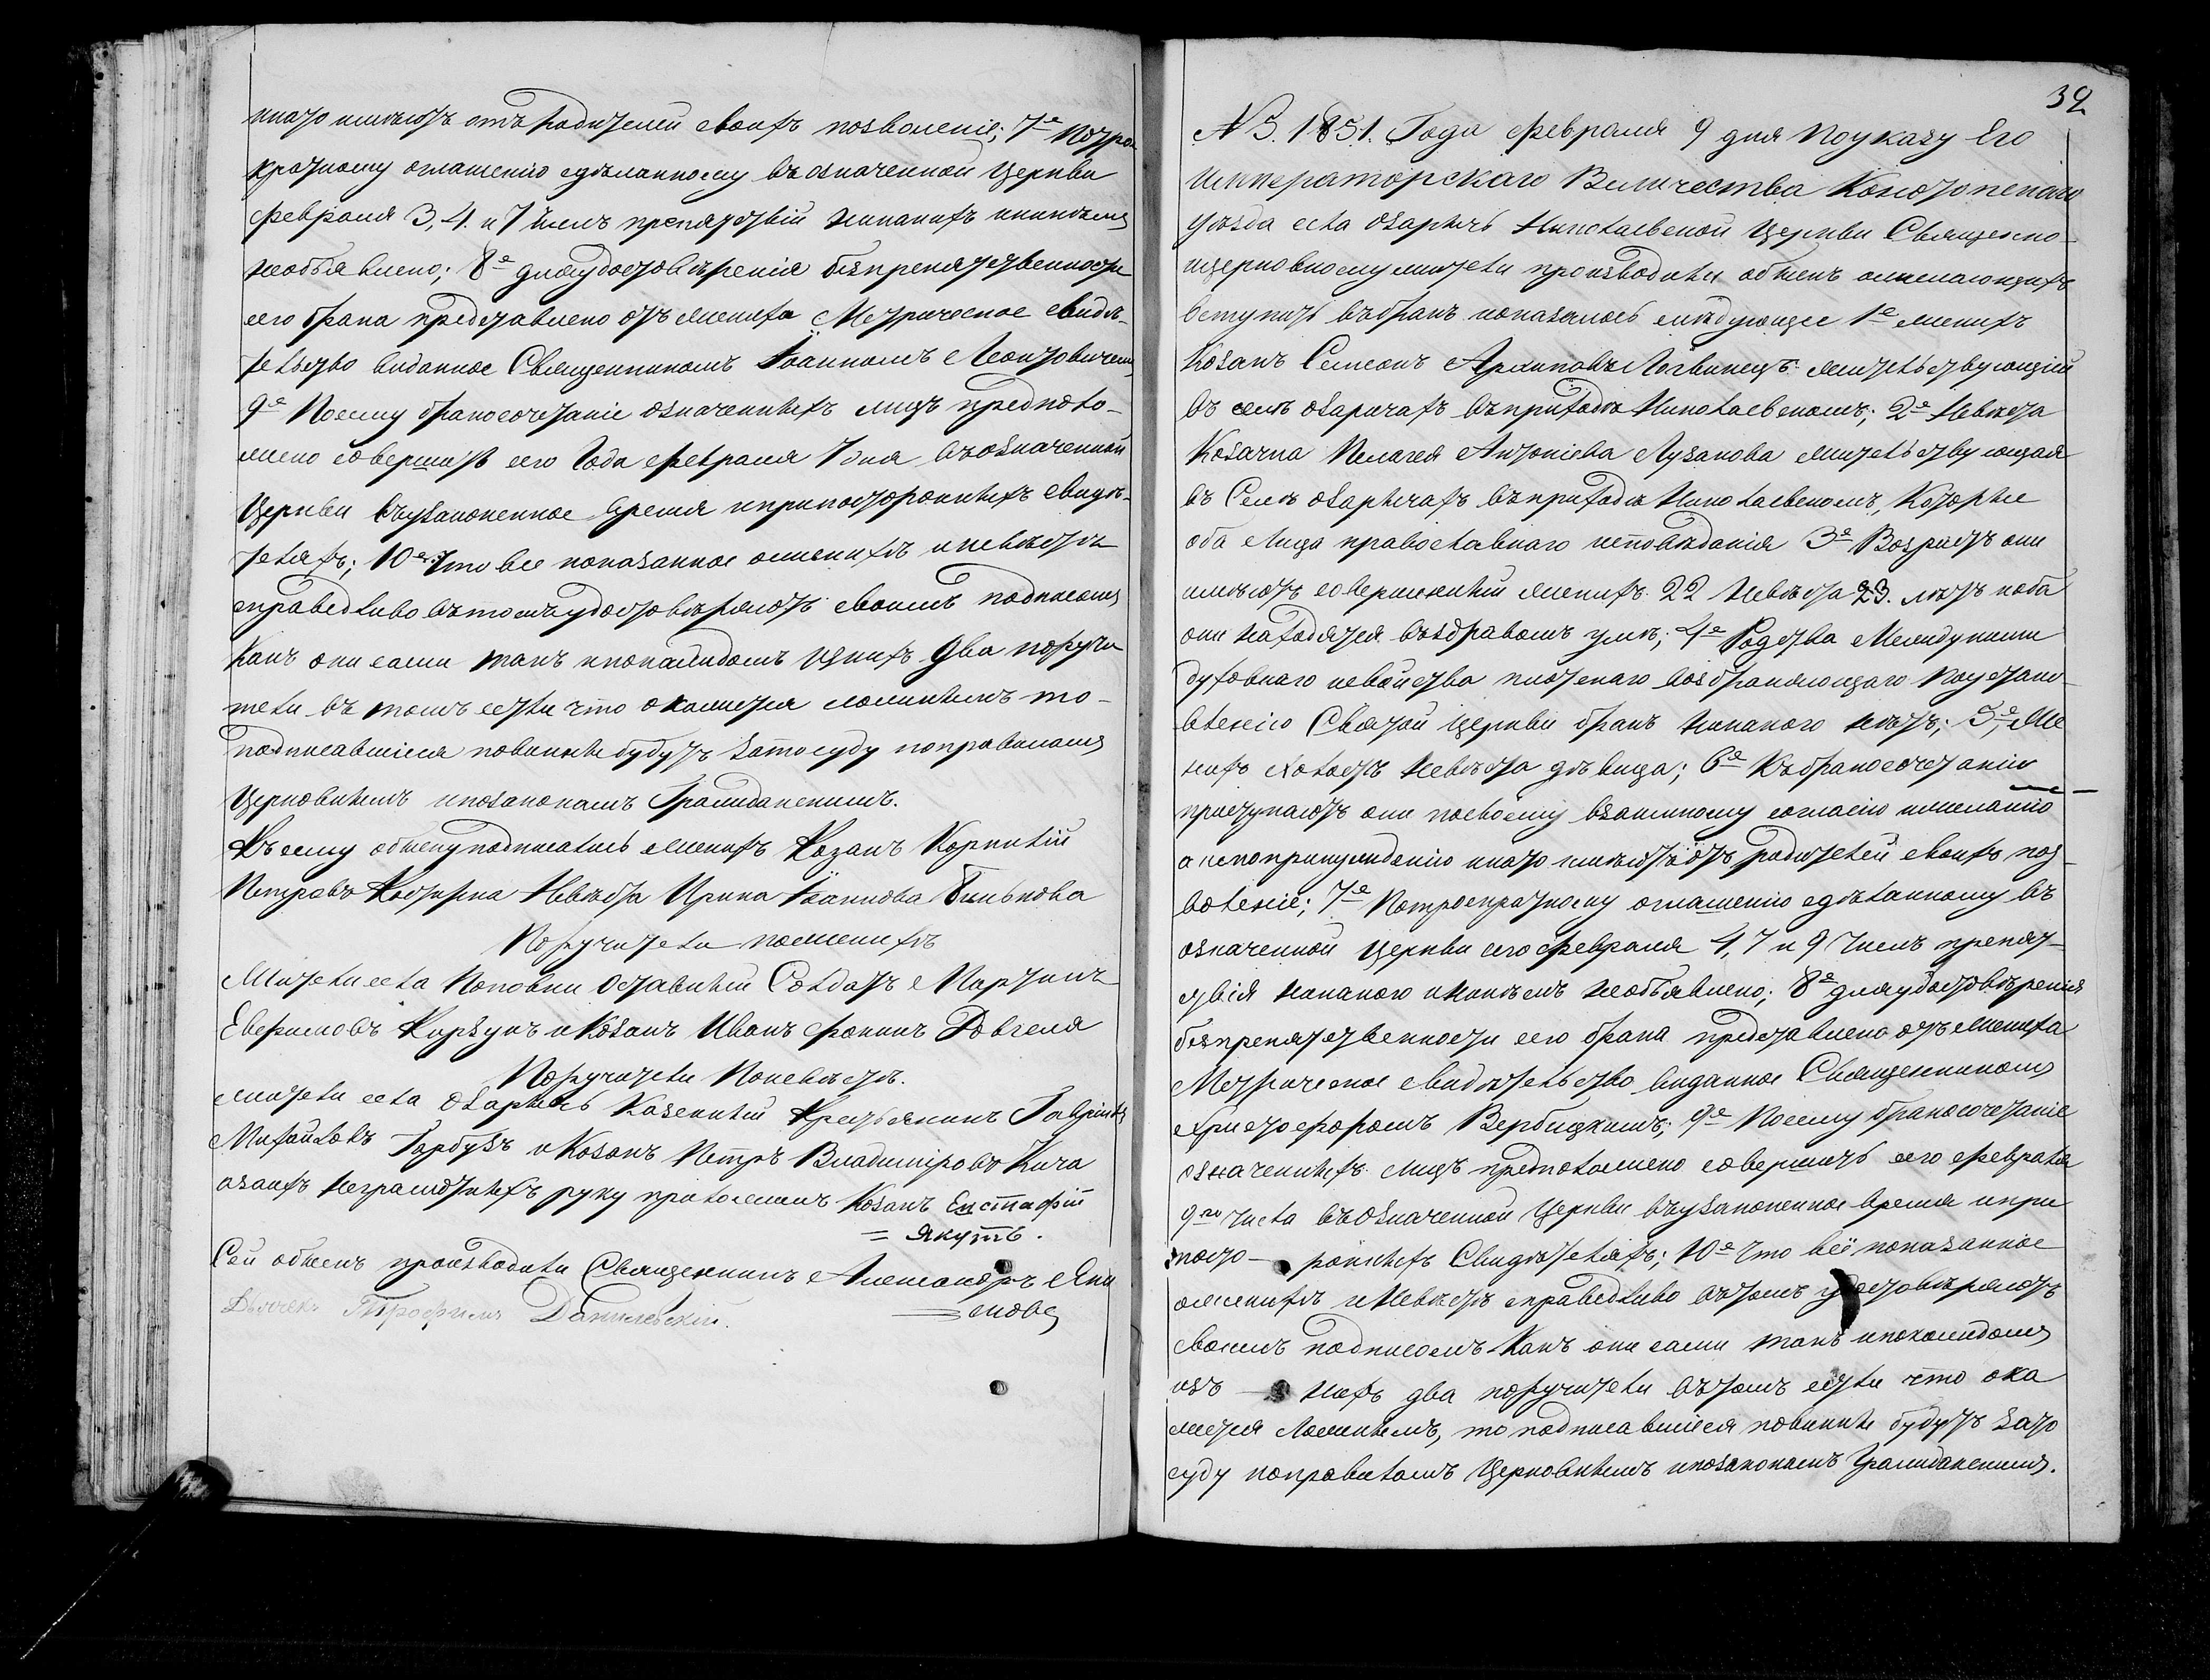 на то имѣютъ отъ родителей своихъ позволеніе; 7е Потро-
кратному оглашенію сдѣланному въ означенной Церкви
февраля 3, 4. и 7 чиелъ препятствій никакихъ никѣмъ
необъявлено; 8е дляудостовѣренія безпрепятственности
сего брака представлено отъ жениха Метрическое свидѣ-
тельство виданное Священникомъ Іоанномъ Леонтовичемъ
9е Посему бракосочетаніе означенныхъ лицъ предполо-
жено совершить сего Года февраля 7 дня въозначенной
Церкви въузаконенное время иприпостороннихъ свидѣ-
теляхъ; 10е Что все показанное оженихѣ иневѣстѣ
справедливо вътомъ удостовѣряютъ своимъ подписомъ
Какъ они сами такъ ипокаждомъ изнихъ два поручи
тели въ томъ если что окажется ложнымъ то-
подписавшіеся повинны будутъ затосуду поправиламъ
Церковнымъ ипозаконамъ Гражданскимъ.
Къ сему обыску подписались женихъ Козакъ Корнилій
Петровъ невѣста Ирина Іоаннова
Поручители поженихѣ
Жители села Поповки Отставный Солдатъ Мартинъ
Евфимовъ Корзунъ и Козакъ Иванъ Фокинъ Довгеля
Поручители Поневѣстѣ.
жители села Озаричъ Казенный Крестьянинъ Гавріилъ
Михайловъ Гарбузъ и Козакъ Петръ Владиміровъ Кича
азаихъ неграмотныхъ руку приложилъ Козакъ Евстафій
= Якутъ.
Сей обыскъ производили Священникъ Александръ Яки
= мовъ
Дьячекъ Трофимъ Данилевскій.
32
N 5. 1851. Года февраля 9 дня Поуказу Его
Императорскаго Величества Конотопскаго
уѣзда села Озаричъ Николаевской Церкви Священно-
ицерковнослужители производили обыскъ ожелающихъ
вступить въбракъ ипоказалось слѣдующее 1е женихъ
Козакъ Семеонъ Архиповъ Логвинецъ жительствующій
въ селѣ Озаричахъ въприходѣ Николаевскомъ; 2е Невѣста
Козачка Пелагея Антоніева Лузанова жительствующая
въ Селѣ Озаричахъ въприходѣ Николаевскомъ, Которые
оба Лица православнаго исповѣданія 3е Возрастъ они
имѣютъ совершенный женихъ 22 Невѣста 23. лѣтъ иоба
они находятся въздравомъ умѣ; 4е Родства Междуними
духовнаго исвойства плотскаго возбраняющаго Поустано-
вленію Святой Церкви бракъ никакого нѣтъ; 5е Же
нихъ Холостъ Невѣста дѣвица; 6е Къбракосочетанію
приступаютъ они посвоему взаимному согласію ижеланію
а непопринужденію инато имѣютъ отъ родителей своихъ поз-
воленіе; 7е Потроекратному оглашенію сдѣланному въ
означенной Церкви сего февраля 4, 7 и 9 Чиелъ препят-
ствія никакого никѣмъ необъявлено; 8е дляудостовѣренія
безпрепятственности сего брака представлено отъ жениха
Метрическое свидѣтельство виданное Священникомъ
Христофоромъ Вербицкимъ; 9е Посему бракосочетаніе
означенныхъ Лицъ предположено совершить сего февраля
9го числа въозначенной Церкви въузаконенное время ипри
посто- роннихъ Свидѣтеляхъ; 10е Что всё показанное
оженихѣ и Невѣстѣ справедливо вътомъ удостовѣряютъ
своимъ подписомъ Какъ они сами такъ ипокаждомъ
изъ - нихъ два поручители вътомъ если что ока
жется Ложнымъ, то подписавшіеся повинны будутъ зато
суду поправиламъ Церковнымъ ипозаконамъ Гражданскимъ.